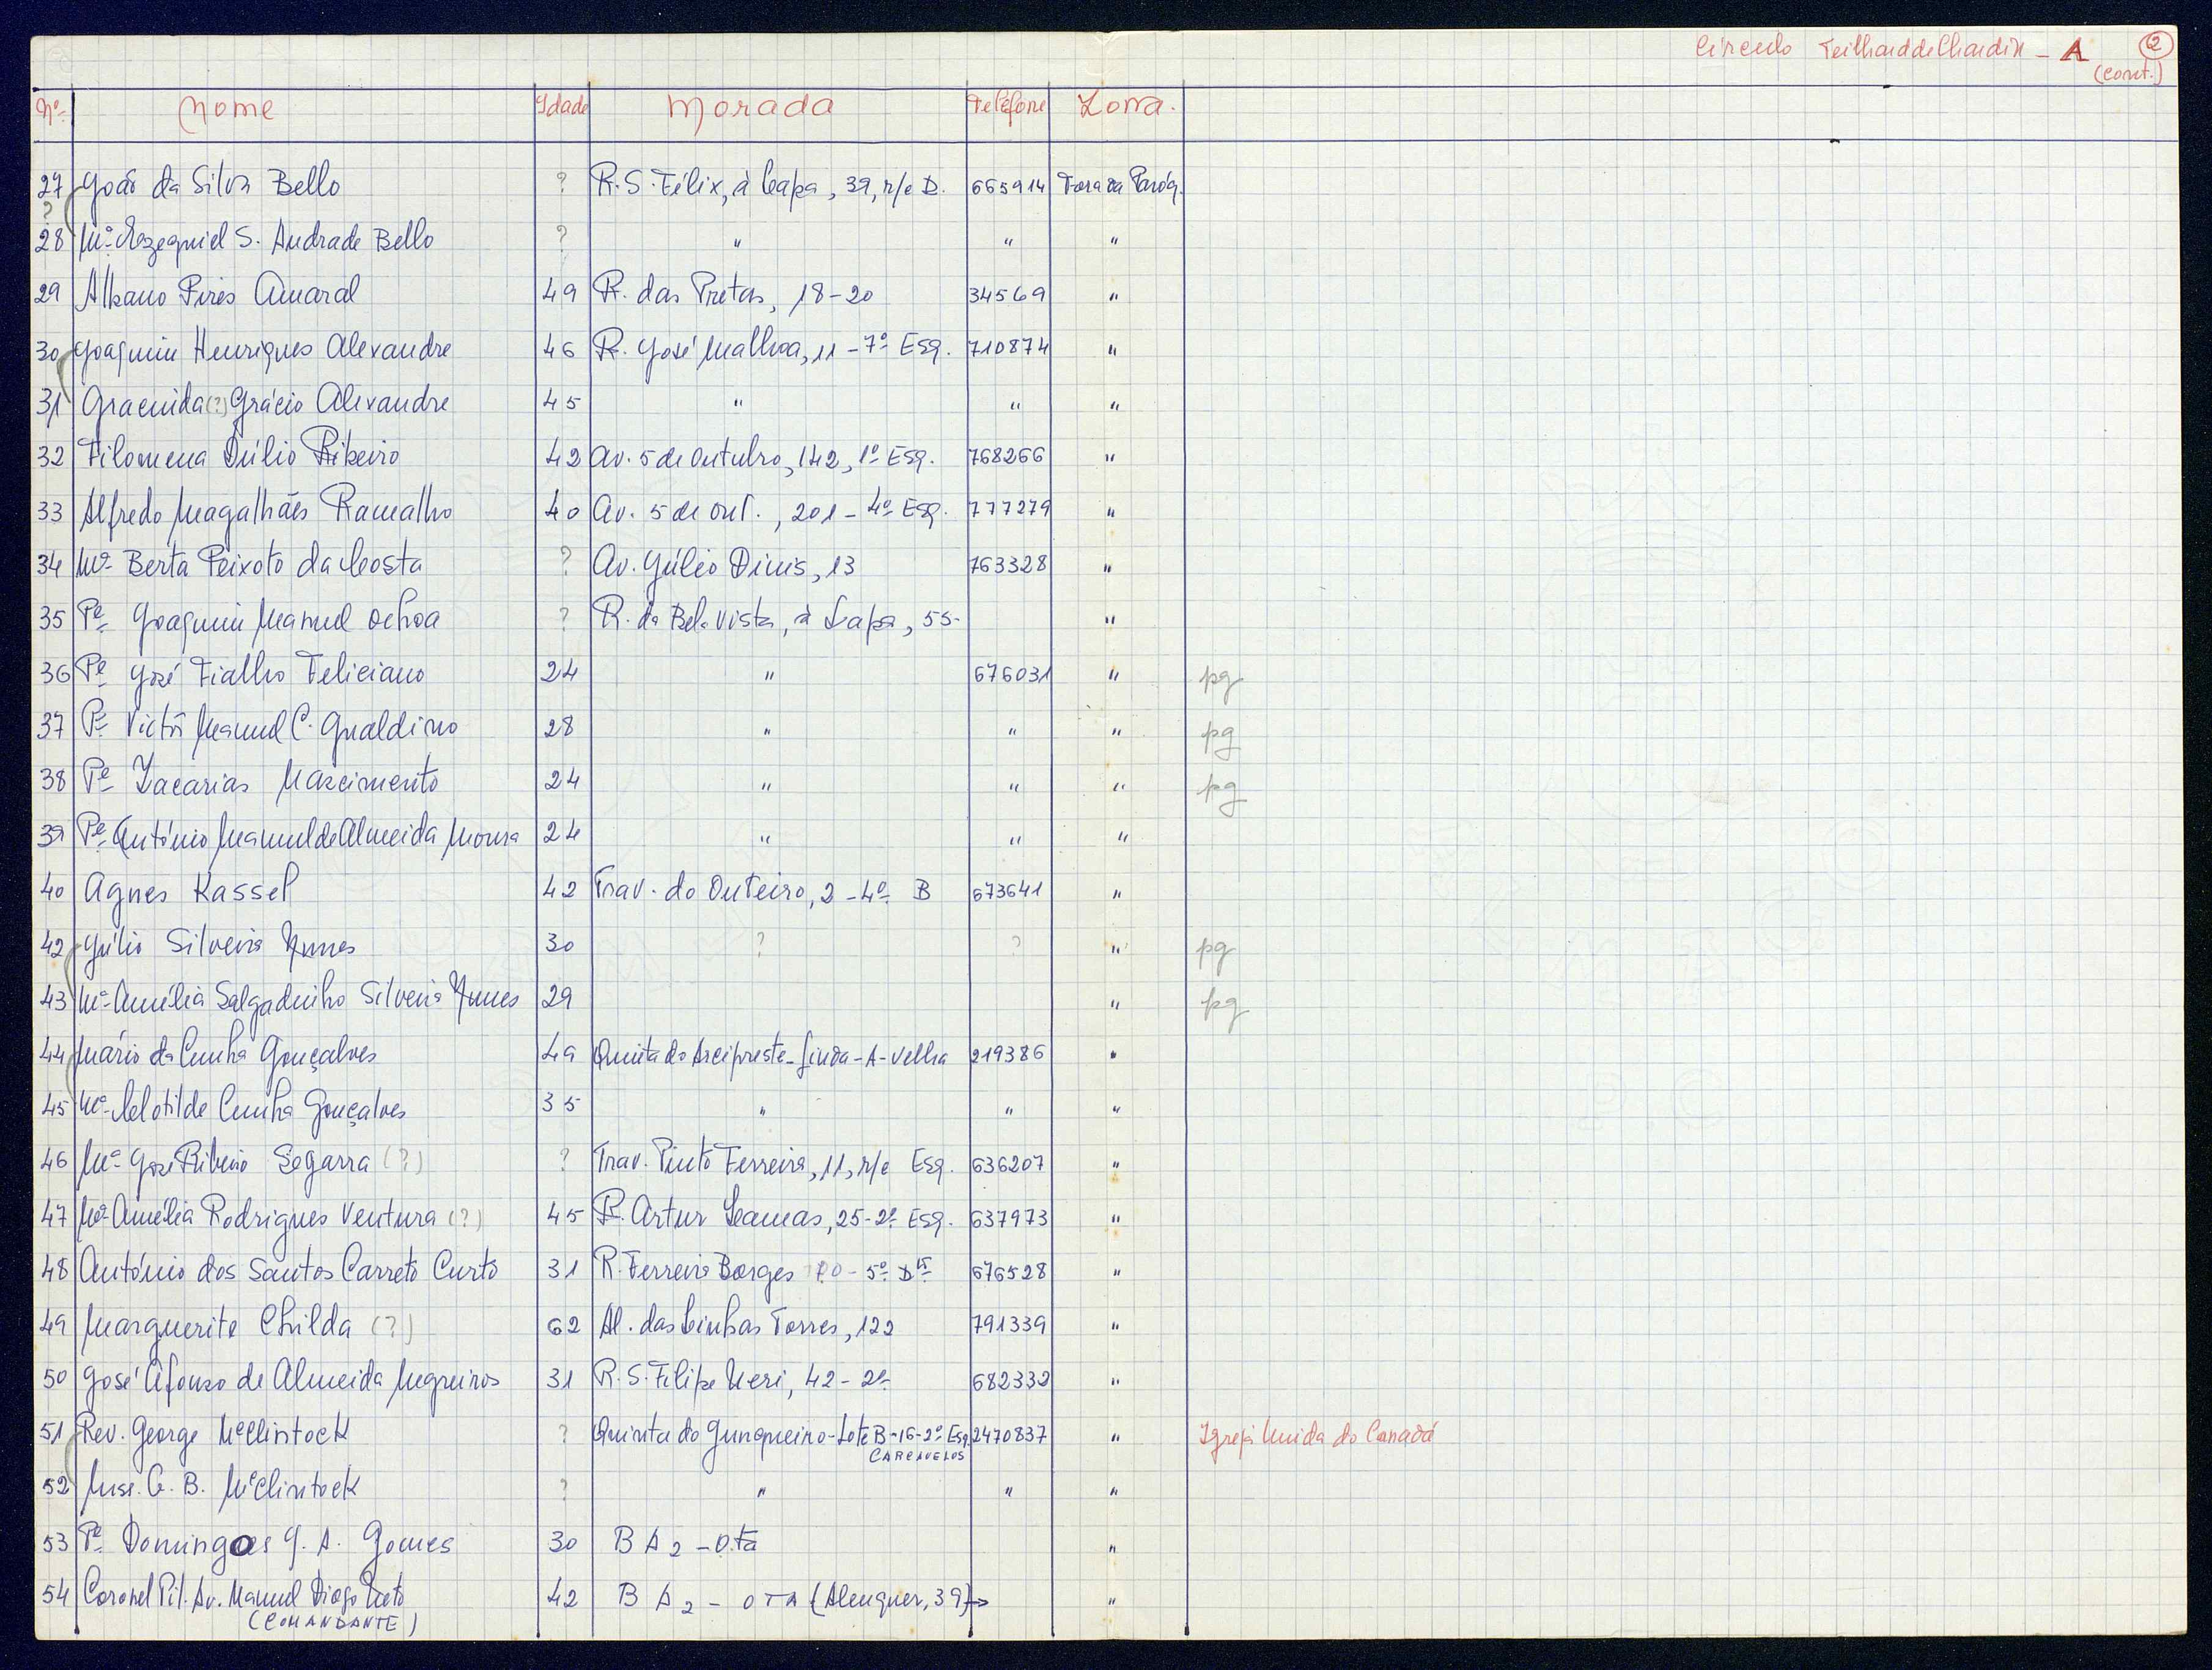 Círculo Teilhard de Chardin - A 2
(cont.)
Nº Nome Idade Morada Teléfone Zona.
27 João da Silva Bello ? R. S. Félix, à Lapa, 39, r/c D. 665914 Fora da Paróq.
?
28 Mª Ezequiel S. Andrade Bello ? " " "
29 Albano Pires Amaral 49 R. das Pretas, 18-20 34569 "
30 Joaquim Henriques Alexandre 46 R. José Malhoa, 11 - 7º Esq. 710874 "
31 Gracinda (?) Grácio Alexandre 45 " " "
32 Filomena Dúlio Ribeiro 42 Av. 5 de Outubro, 142, 1º Esq. 768266 "
33 Alfredo Magalhães Ramalho 40 Av. 5 de Out., 201 - 4º Esq. 777279 "
34 Mª Berta Peixoto da Costa ? Av. Júlio Dinis, 13 763328 "
35 Pe Joaquim Manuel Ochoa ? R. da Bela Vista, à Lapa, 55- "
36 Pe José Fialho Feliciano 24 " 676031 " pg
37 Pe Victor Manuel C. Gualdino 28 " " " pg
38 Pe Zacarias Nascimento 24 " " " pg
39 Pe António Manuel de Almeida Moura 24 " " "
40 Agnes Kassel 42 Trav. do Outeiro, 2 - 4º B 673641 "
42 Júlio Silveira Nunes 30 ? ? " pg
43 Mª Amélia Salgadinho Silveira Nunes 29 " pg
44 Mário da Cunha Gonçalves 49 Quinta do Arcipreste - Linda-A-Velha 219386 "
45 Mª Clotilde Cunha Gonçalves 35 " " "
46 Mª José Ribeiro Segarra (?) ? Trav. Pinto Ferreira, 11, r/c Esq. 636207 "
47 Mª Amélia Rodrigues Ventura (?) 45 R. Artur Lamas, 25-2º Esq. 637973 "
48 António dos Santos Carreto Curto 31 R. Ferreira Borges - 5º Dto 676528 "
49 Marguerite Childa (?) 62 Al. das Linhas Torres, 122 791339 "
50 José Afonso de Almeida Negreiros 31 R. S. Filipe Neri, 42 - 2º 682332 "
51 Rev. George McClintock ? Quinta do Junqueiro - Lote B-16-2º Esq. 2470837 " Igreja Unida do Canadá
CARCAVELOS
52 G. B. McClintock ? " " "
53 Pe Domingos J. A. Gomes 30 BA2 - Ota "
54 Coronel Pil. Av. Manuel Diogo Neto 42 BA2 - OTA (Alenquer, 39) → "
(COMANDANTE)